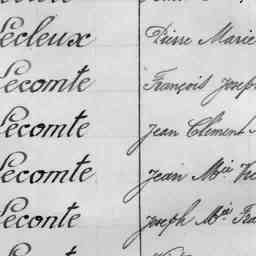 Lecleux Pierre Marie
Lecomte François Joseph
Lecomte Jean Clément
Lecomte Jean Mie
Leconte Joseph Mie